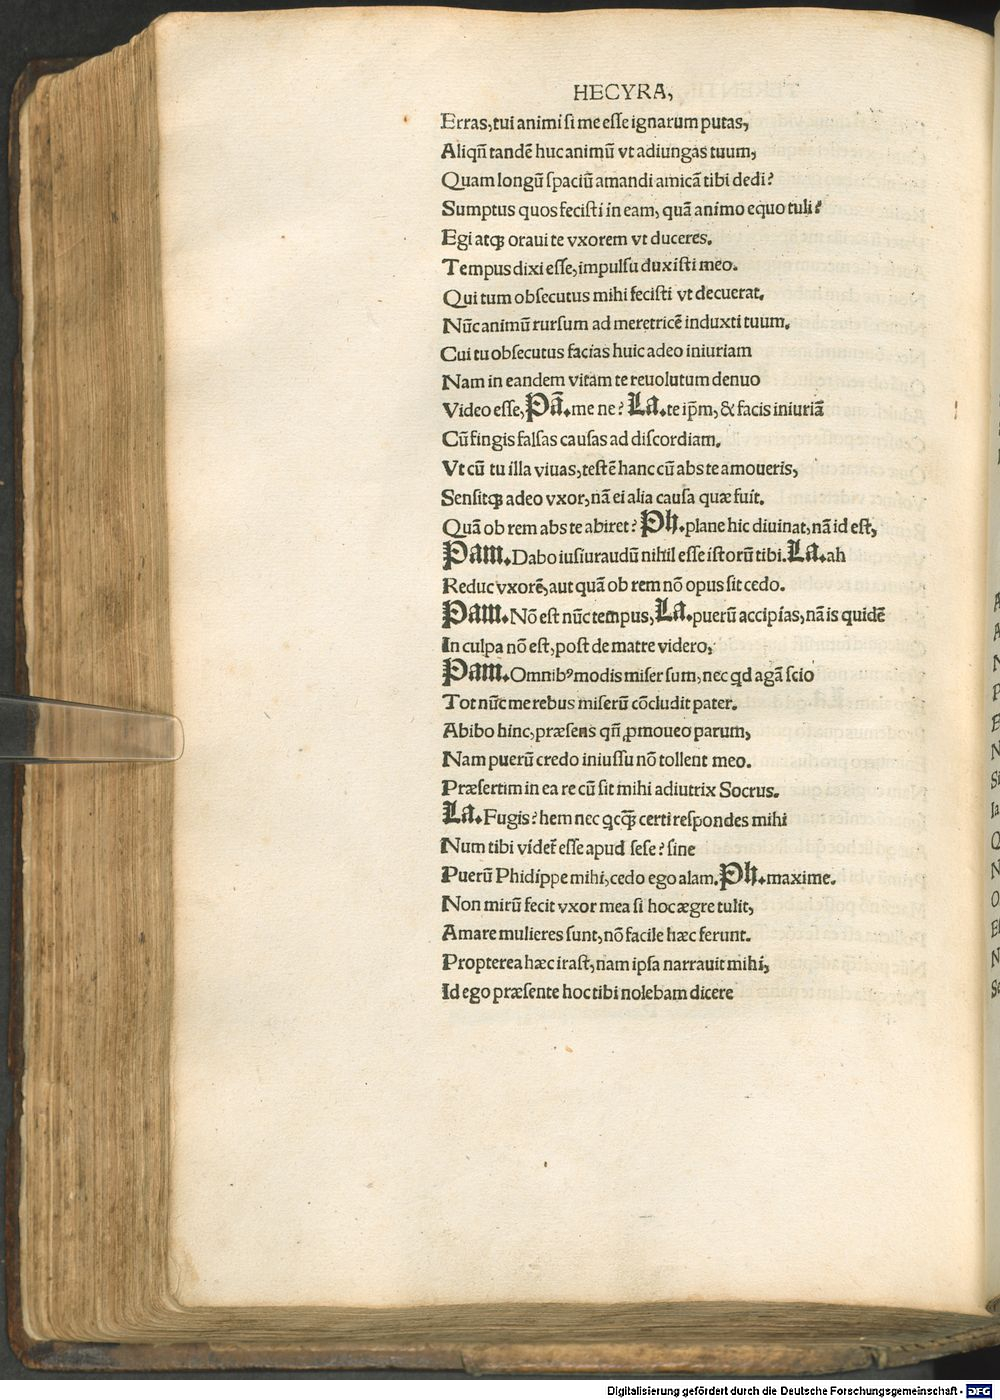 HECYRA,
Erras, tui animi si me eſſe ignarum putas,
Aliqñ tandẽ huc animũ vt adiungas tuum,
Quam longũ ſpaciũ amandi amicã tibi dedi?
Sumptus quos feciſti in eam, quã animo equo tuli?
Egi atqꝫ oraui te vxorem vt duceres.
Tempus dixi eſſe, impulſu duxiſti meo.
Qui tum obſecutus mihi feciſti vt decuerat.
Nũc animũ rurſum ad meretricẽ induxti tuum.
Cui tu obſecutus facias huic adeo iniuriam
Nam in eandem vitam te reuolutum denuo
Video eſſe, Pã. me ne? La. te ip̃m, & facis iniuriã
Cũ fingis falſas cauſas ad diſcordiam.
Vt cũ tu illa viuas, teſtẽ hanc cũ abs te amoueris,
Senſitqꝫ adeo vxor, nã ei alia cauſa quæ fuit.
Quã ob rem abs te abiret? Ph. plane hic diuinat, nã id eſt,
Pam. Dabo iuſiuraudũ nihil eſſe iſtorũ tibi. La. ah
Reduc vxorẽ, aut quã ob rem nõ opus ſit cedo.
Pam. Nõ eſt nũc tempus, La. puerũ accipias, nã is quidẽ
In culpa nõ eſt, poſt de matre videro,
Pam. Omnibꝰ modis miſer ſum, nec qd agã ſcio
Tot nũc me rebus miſerũ cõcludit pater.
Abibo hinc, præſens qñ ꝓmoueo parum,
Nam puerũ credo iniuſſu nõ tollent meo.
Præſertim in ea re cũ ſit mihi adiutrix Socrus.
La. Fugis? hem nec qcq̃ certi reſpondes mihi
Num tibi videt̃ eſſe apud ſeſe? ſine
Puerũ Phidippe mihi, cedo ego alam. Ph. maxime.
Non mirũ fecit vxor mea ſi hoc ægre tulit,
Amare mulieres ſunt, nõ facile hæc ferunt.
Propterea hæc iraſt, nam ipſa narrauit mihi,
Id ego præſente hoc tibi nolebam dicere
Digitalisierung gefördert durch die Deutsche Forschungsgemeinschaft - DFG